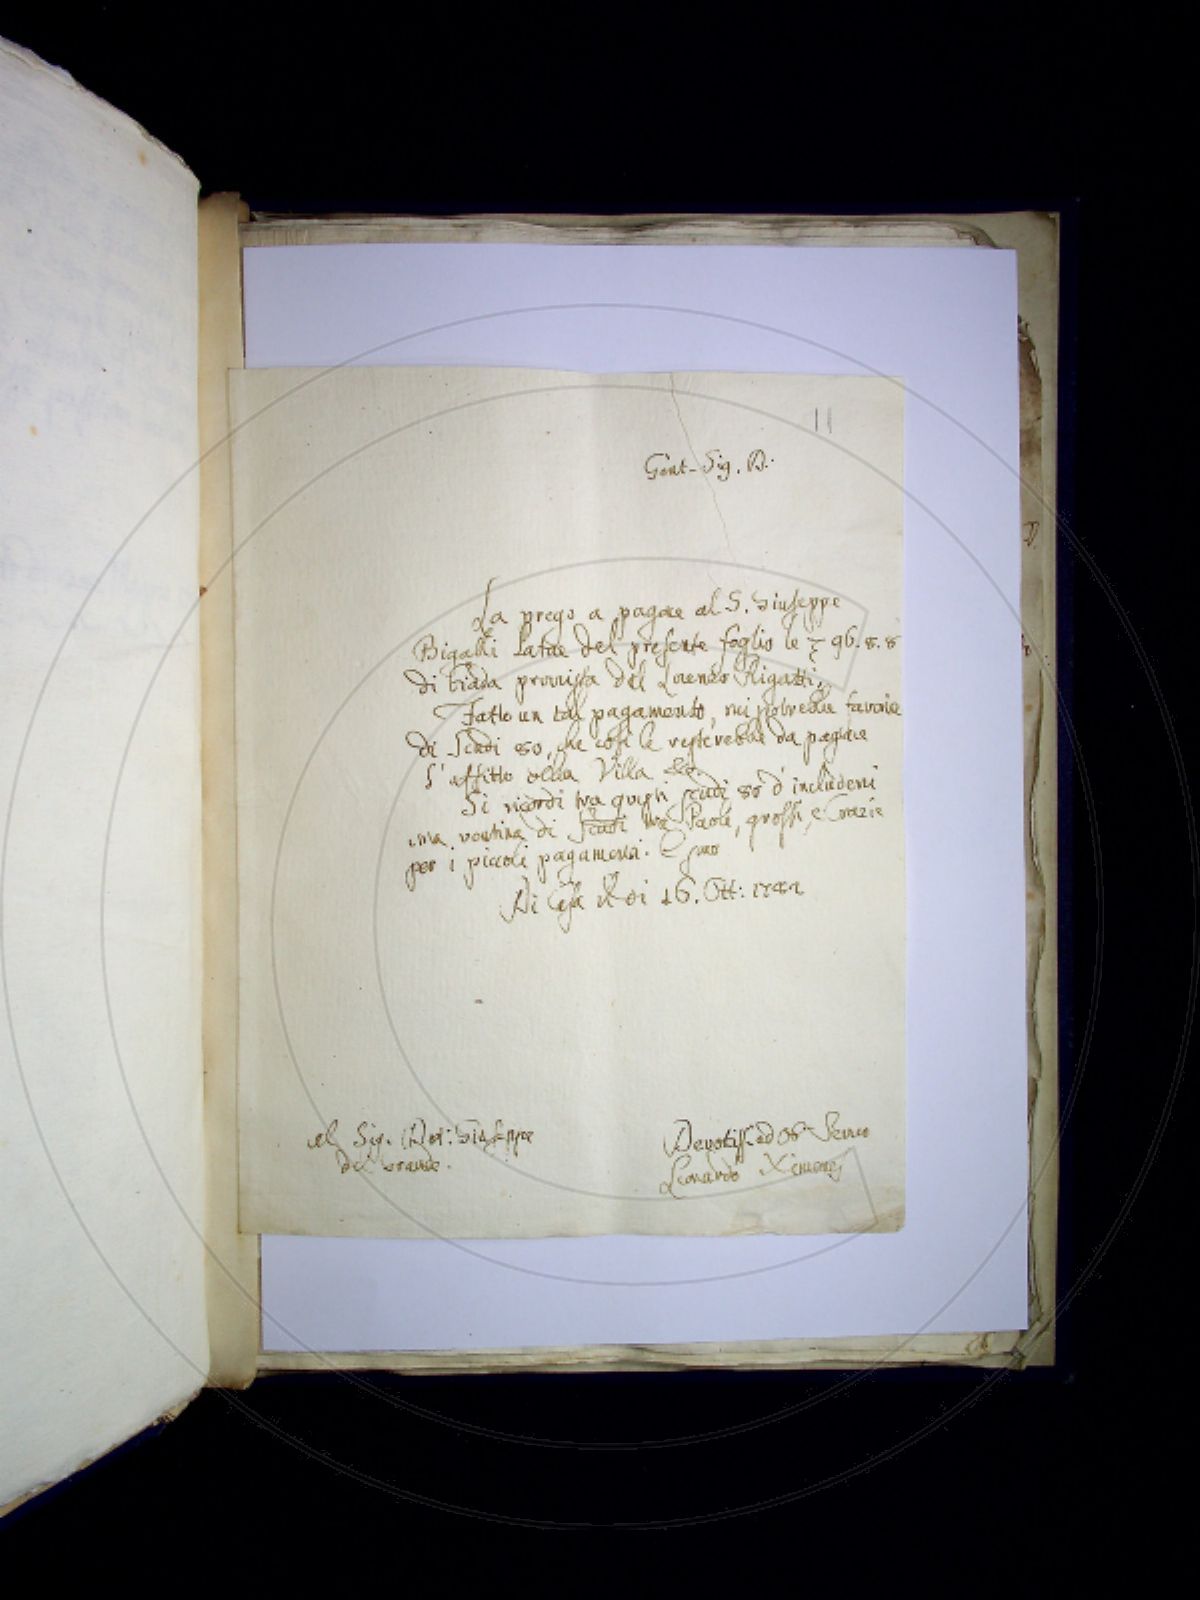 11
Gent- Sig. P.
La prego a pagare al S. Giuseppe
Bigalli latore del presente foglio le 96. 8. 8
di biada provvista del Lorenzo Rigatti.
Fatto un tal pagamento, mi potrebbe favorire
di Scudi 80, che così le resterebbe da pagare
l'affitto della Villa &c.
Si ricordi tra questi scudi 80 d'includervi
una ventina di Scudi tra Paoli, grossi, e Crazie
per i piccoli pagamenti. E sono
Di Casa di 16. Ott:
al Sig. Giuseppe
del
Devotiss. ed Ob. Servo
Leonardo Ximenes